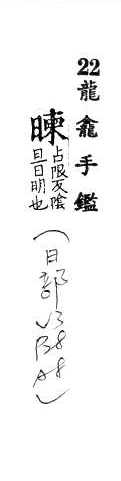 22龍龕手鑑
暕
占限反陰
旦日明也
(日部